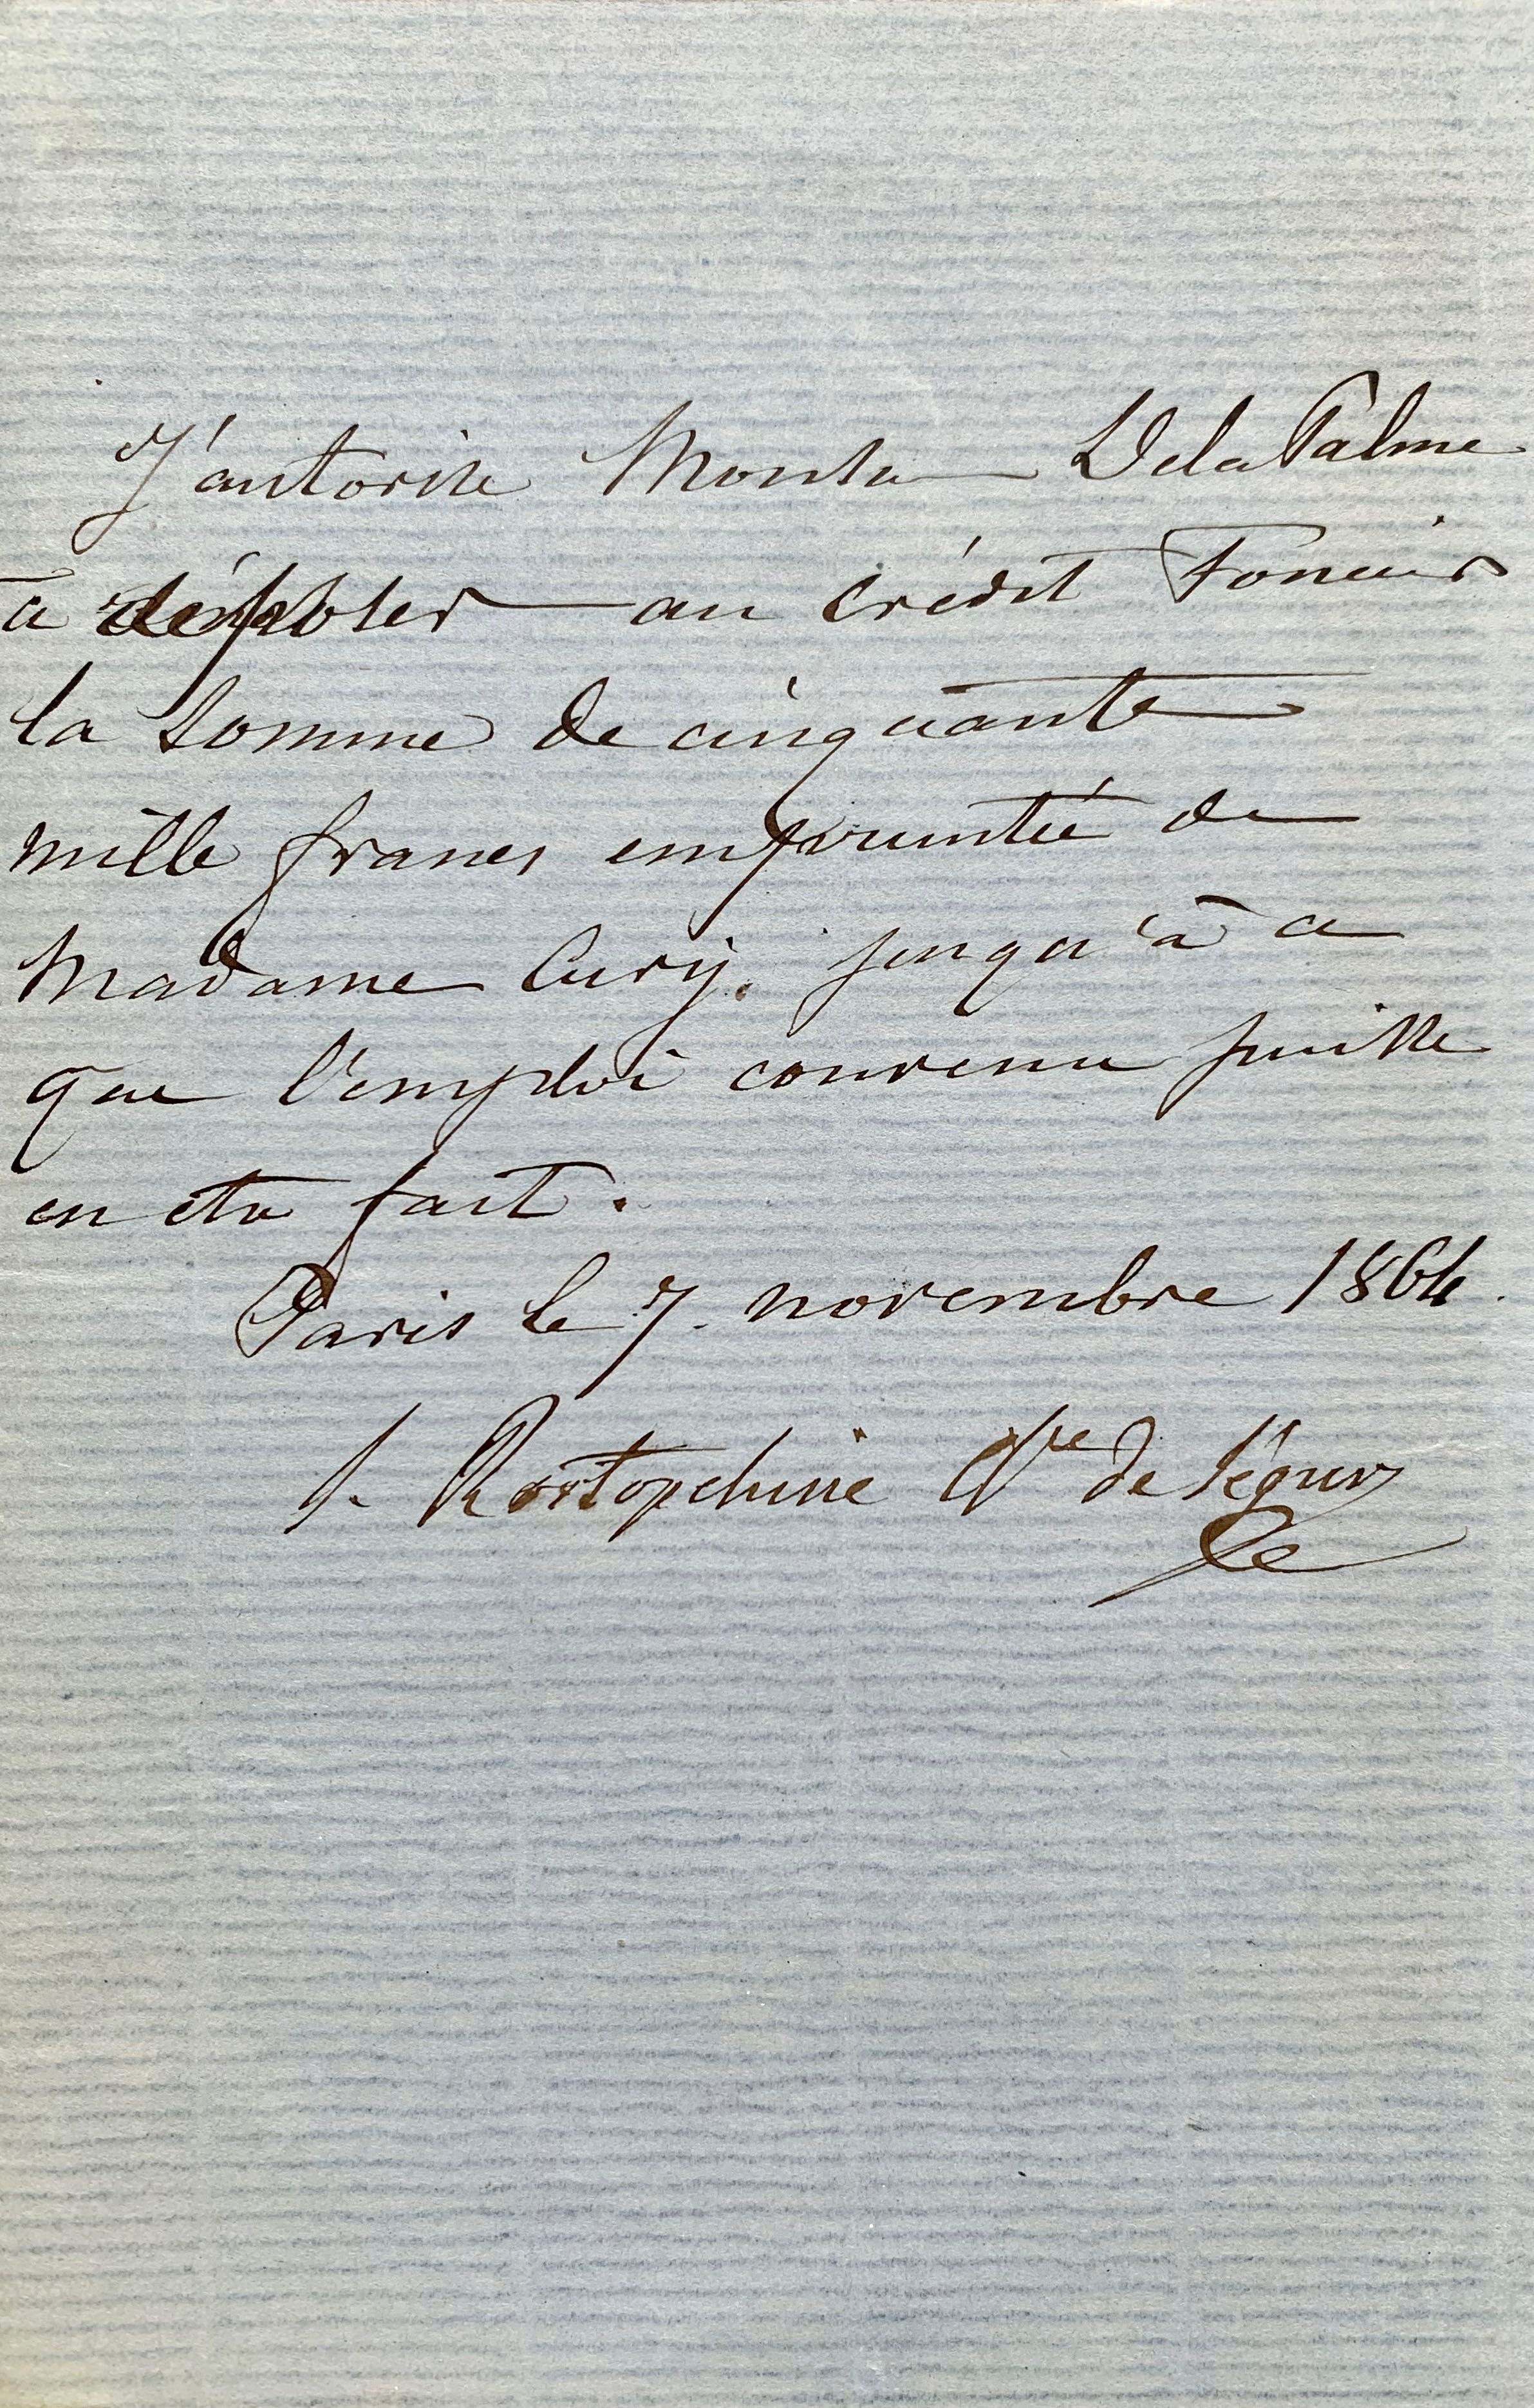 J'autorise Monsieur DelaPalme
à déposer au crédit Foncier
la somme de cinquante
mille francs empruntée de
Madame Cury. jusqu'à ce
que l'emploi convenu puisse
en être fait.
Paris le 7. novembre 1864.
S. Rostopchine Ctsse de Ségur